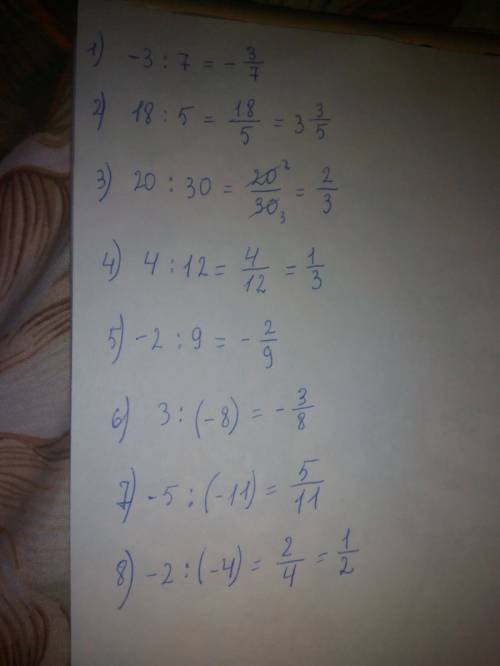 1) -3 : 7 = - 3/7
2) 18 : 5 = 18/5 = 3 3/5
3) 20 : 30 = 20²/30₃ = 2/3
4) 4 : 12 = 4/12 = 1/3
5) -2 : 9 = - 2/9
6) 3 : (-8) = - 3/8
7) -5 : (-11) = 5/11
8) -2 : (-4) = 2/4 = 1/2